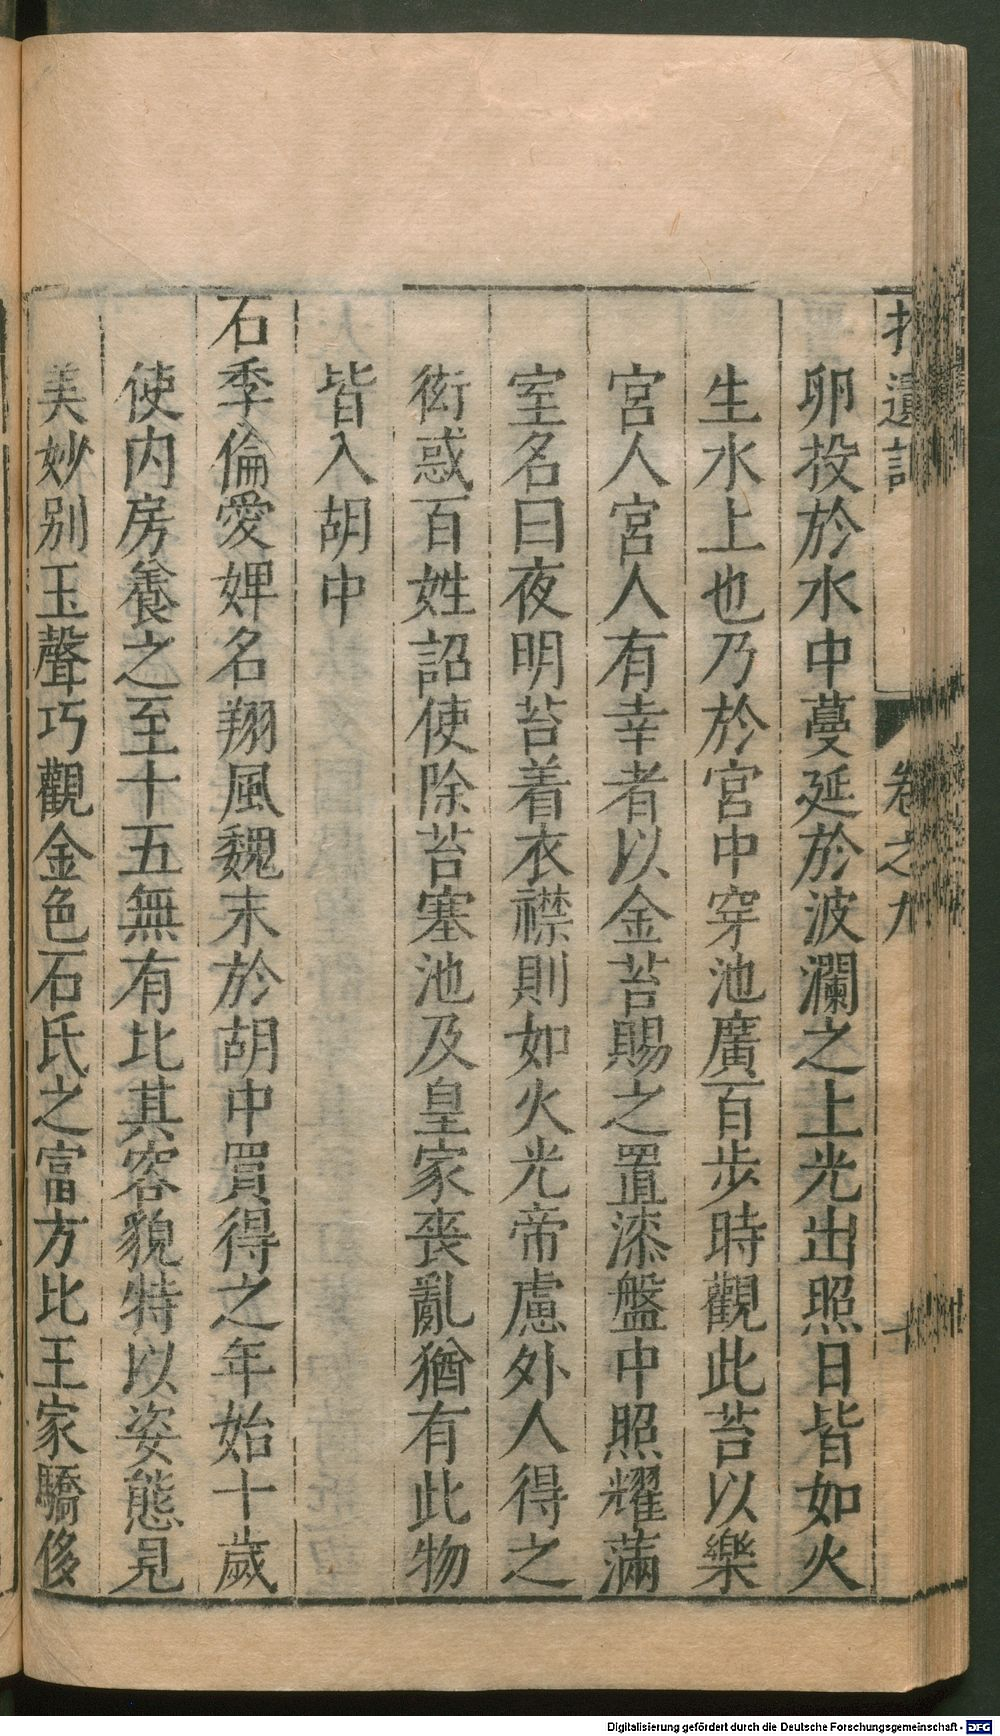 拾遺記 卷之九 十
卵投於水中蔓延於波瀾之上光出照日皆如火
生水上也乃於宮中穿池廣百步時觀此苔以樂
宮人宮人有幸者以金苔賜之置漆盤中照耀滿
室名曰夜明苔着衣襟則如火光帝慮外人得之
衒惑百姓詔使除苔塞池及皇家喪亂猶有此物
皆入胡中
石季倫愛婢名翔風魏末於胡中買得之年始十歲
使内房養之至十五無有比其容貌特以姿態見
美妙别玉聲巧觀金色石氏之富方比王家驕侈
Digitalisierung gefördert durch die Deutsche Forschungsgemeinschaft - DFG